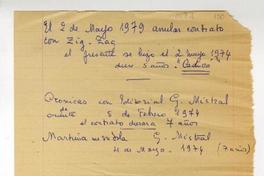 El 2 de Mayo 1979 anular contrato
con Zig-Zag
el presente se hizo el 2 mayo 1974
dura 5 años. Caduca
Cronicas con Editorial G. Mistral
5 de Febrero 1974
el contrato durara 7 años
Martina G. Mistral
de Mayo. 1974 (7 años)